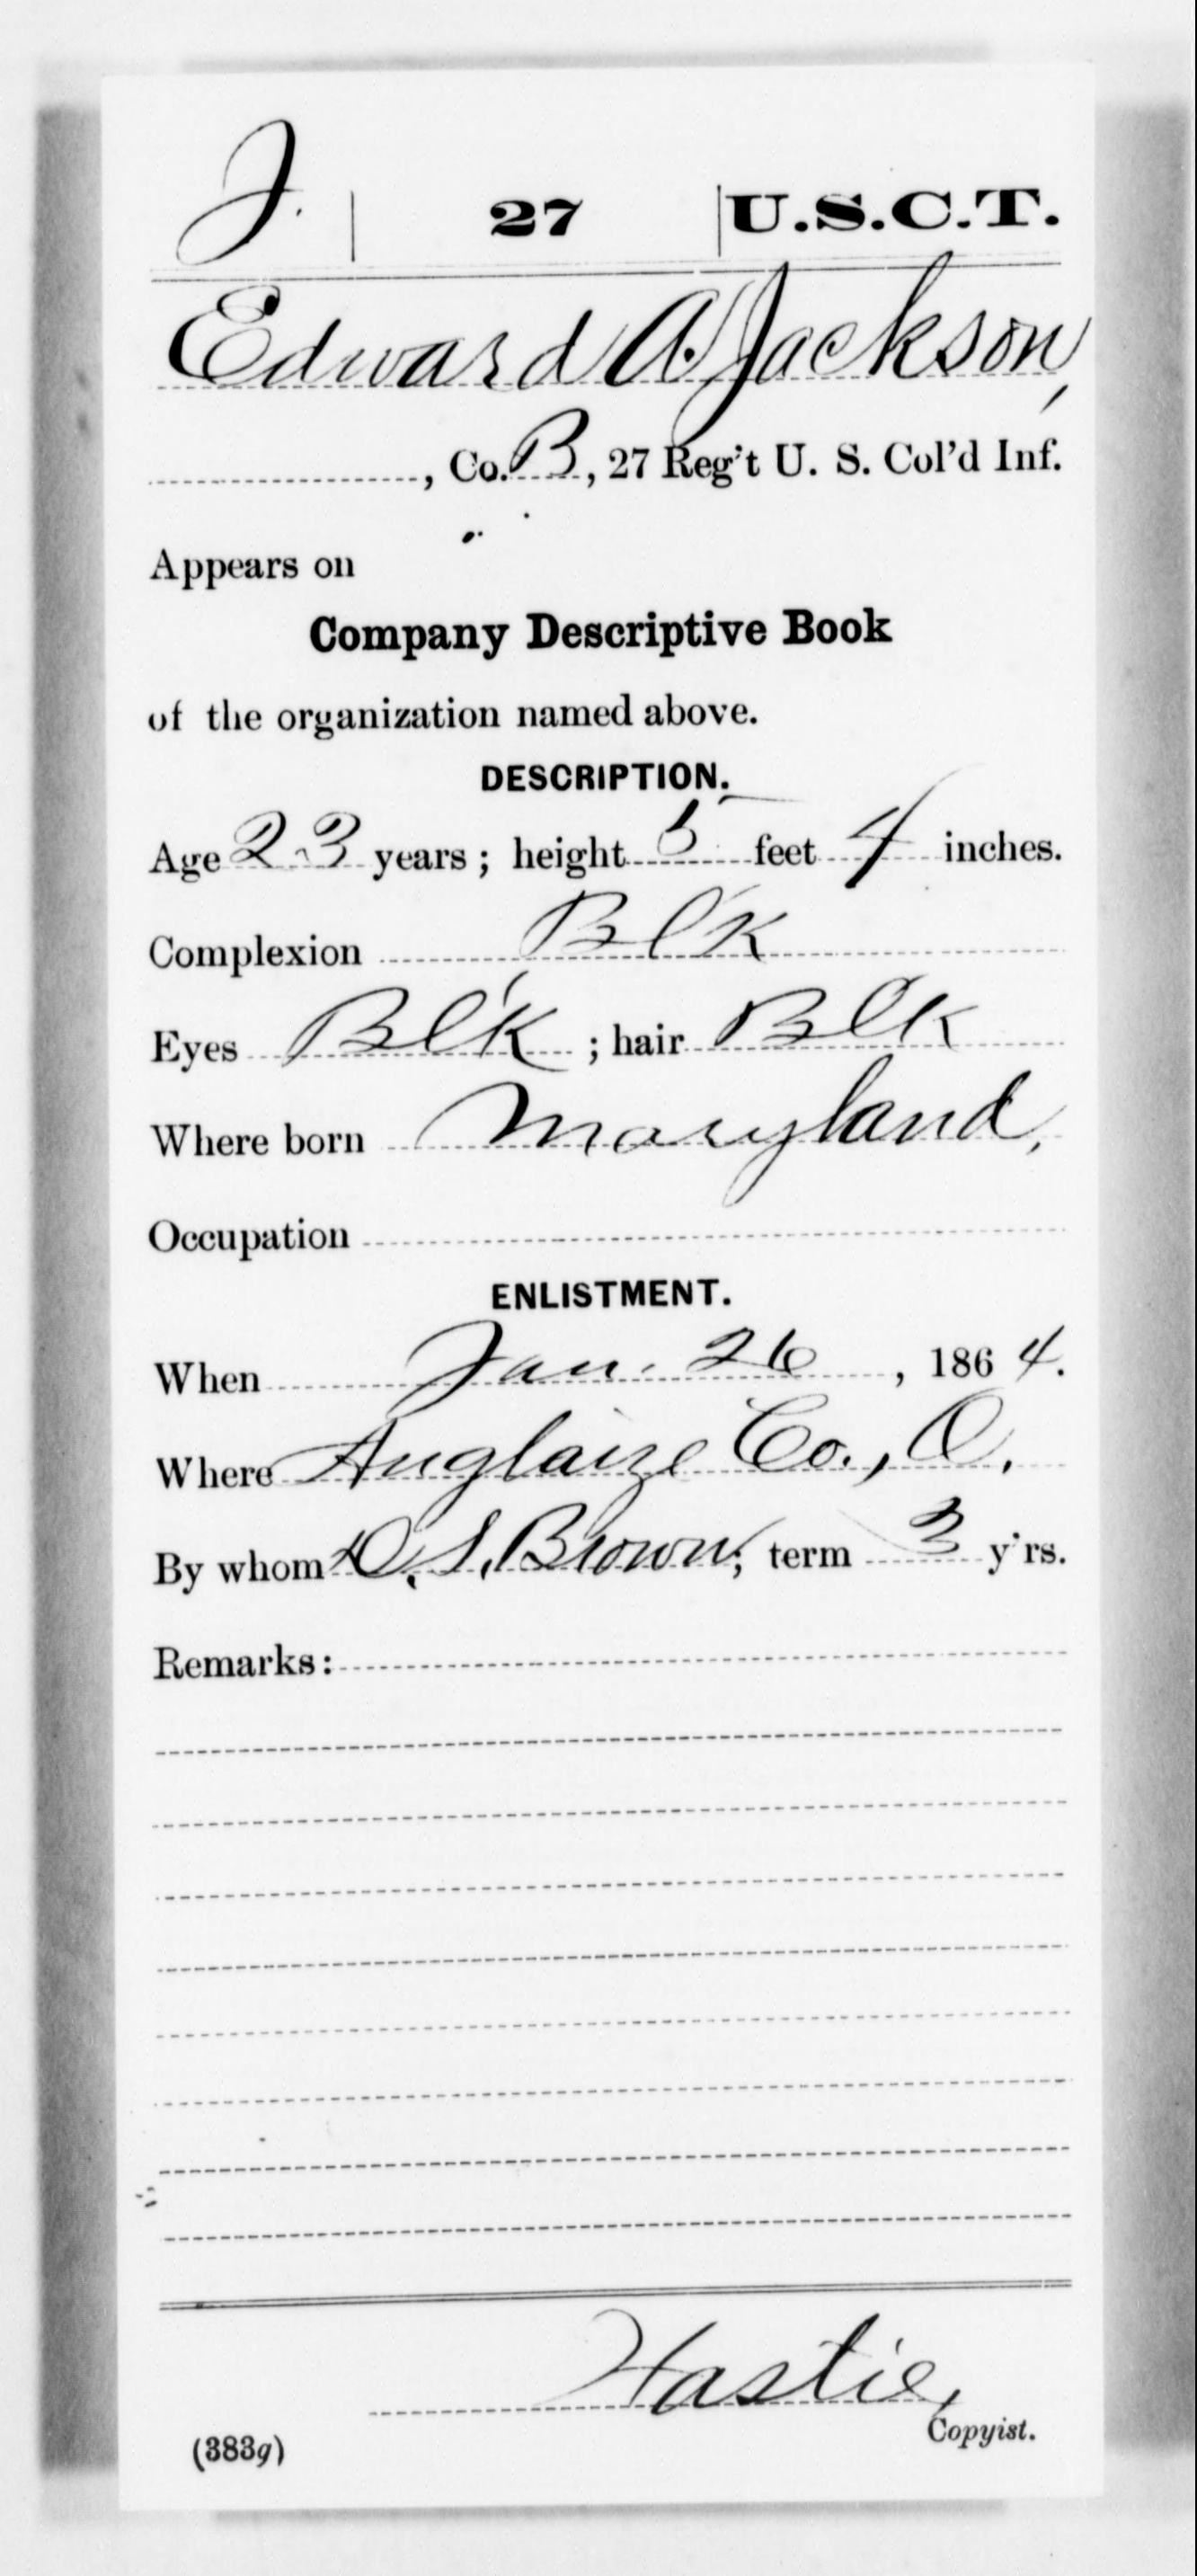 J. | 27 | U.S.C.T.
Edward A. Jackson,
, Co. B, 27 Reg't U. S. Col'd Inf.
Appears on
Company Descriptive Book
of the organization named above.
DESCRIPTION.
Age 23 years; height 5 feet 4 inches.
Complexion Bl'k
Eyes Bl'k ; hair Blk
Where born Maryland,
Occupation
ENLISTMENT.
When Jan. 26, 1864.
Where Auglaize Co., O.
By whom D. S. Brown; term 3 y'rs.
Remarks:
Hastie,
Copyist.
(383g)